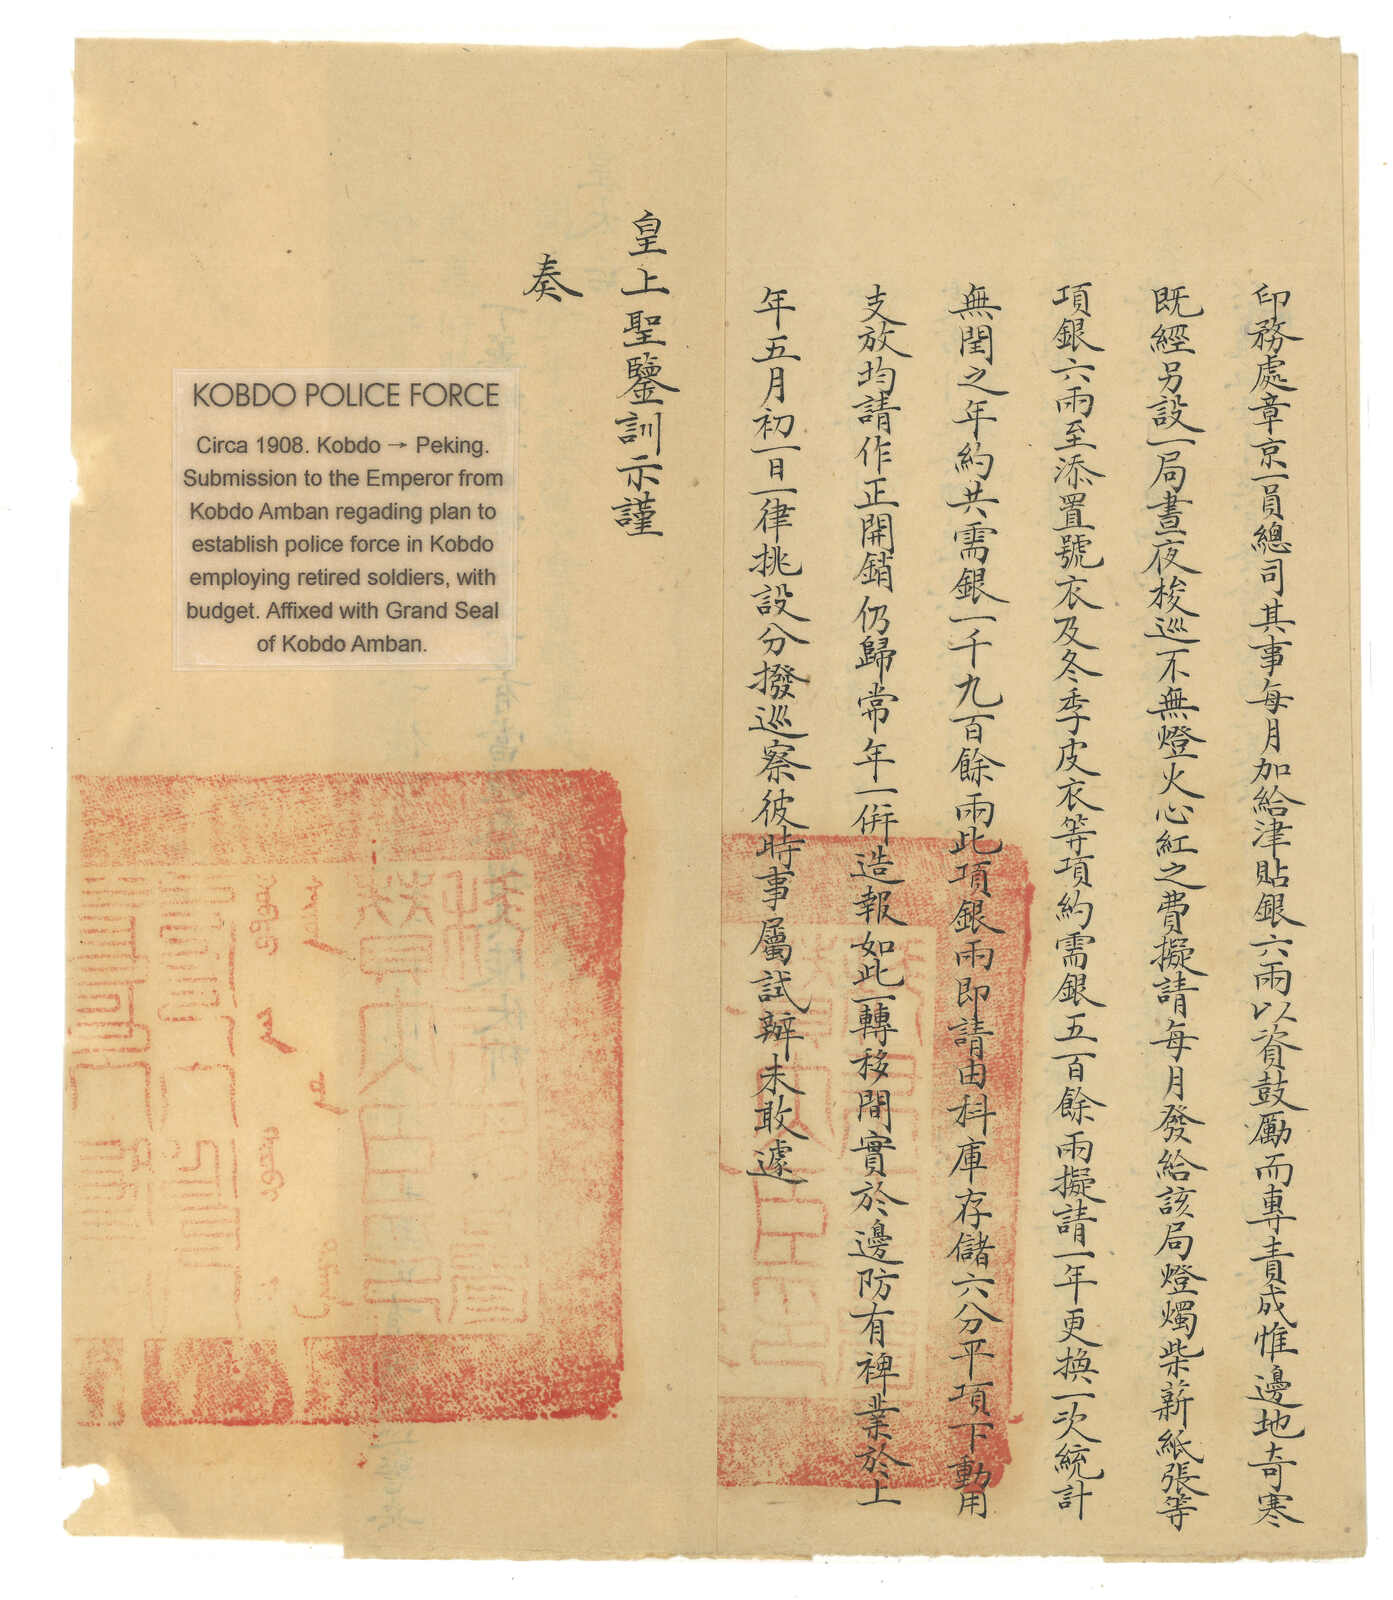 印務處章京一員總司其事每月加給津貼銀六兩以資鼓勵而專責成惟邊地奇寒
既經另設一局晝夜梭巡不無燈火心紅之費擬請每月發給該局燈燭柴薪紙張等
項銀六兩至添置號衣及冬季皮衣等項約需銀五百餘兩擬請一年更換一次統計
無閏之年約共需銀一千九百餘兩此項銀兩即請由科庫存儲六分平項下動用
支放均請作正開銷仍歸常年一併造報如此一轉移間實於邊防有裨業於上
年五月初一日一律挑設分撥巡察彼時事屬試辦未敢遽
奏
皇上聖鑒訓示謹
KOBDO POLICE FORCE
Circa 1908. Kobdo → Peking.
Submission to the Emperor from
Kobdo Amban regading plan to
establish police force in Kobdo
employing retired soldiers, with
budget. Affixed with Grand Seal
of Kobdo Amban.